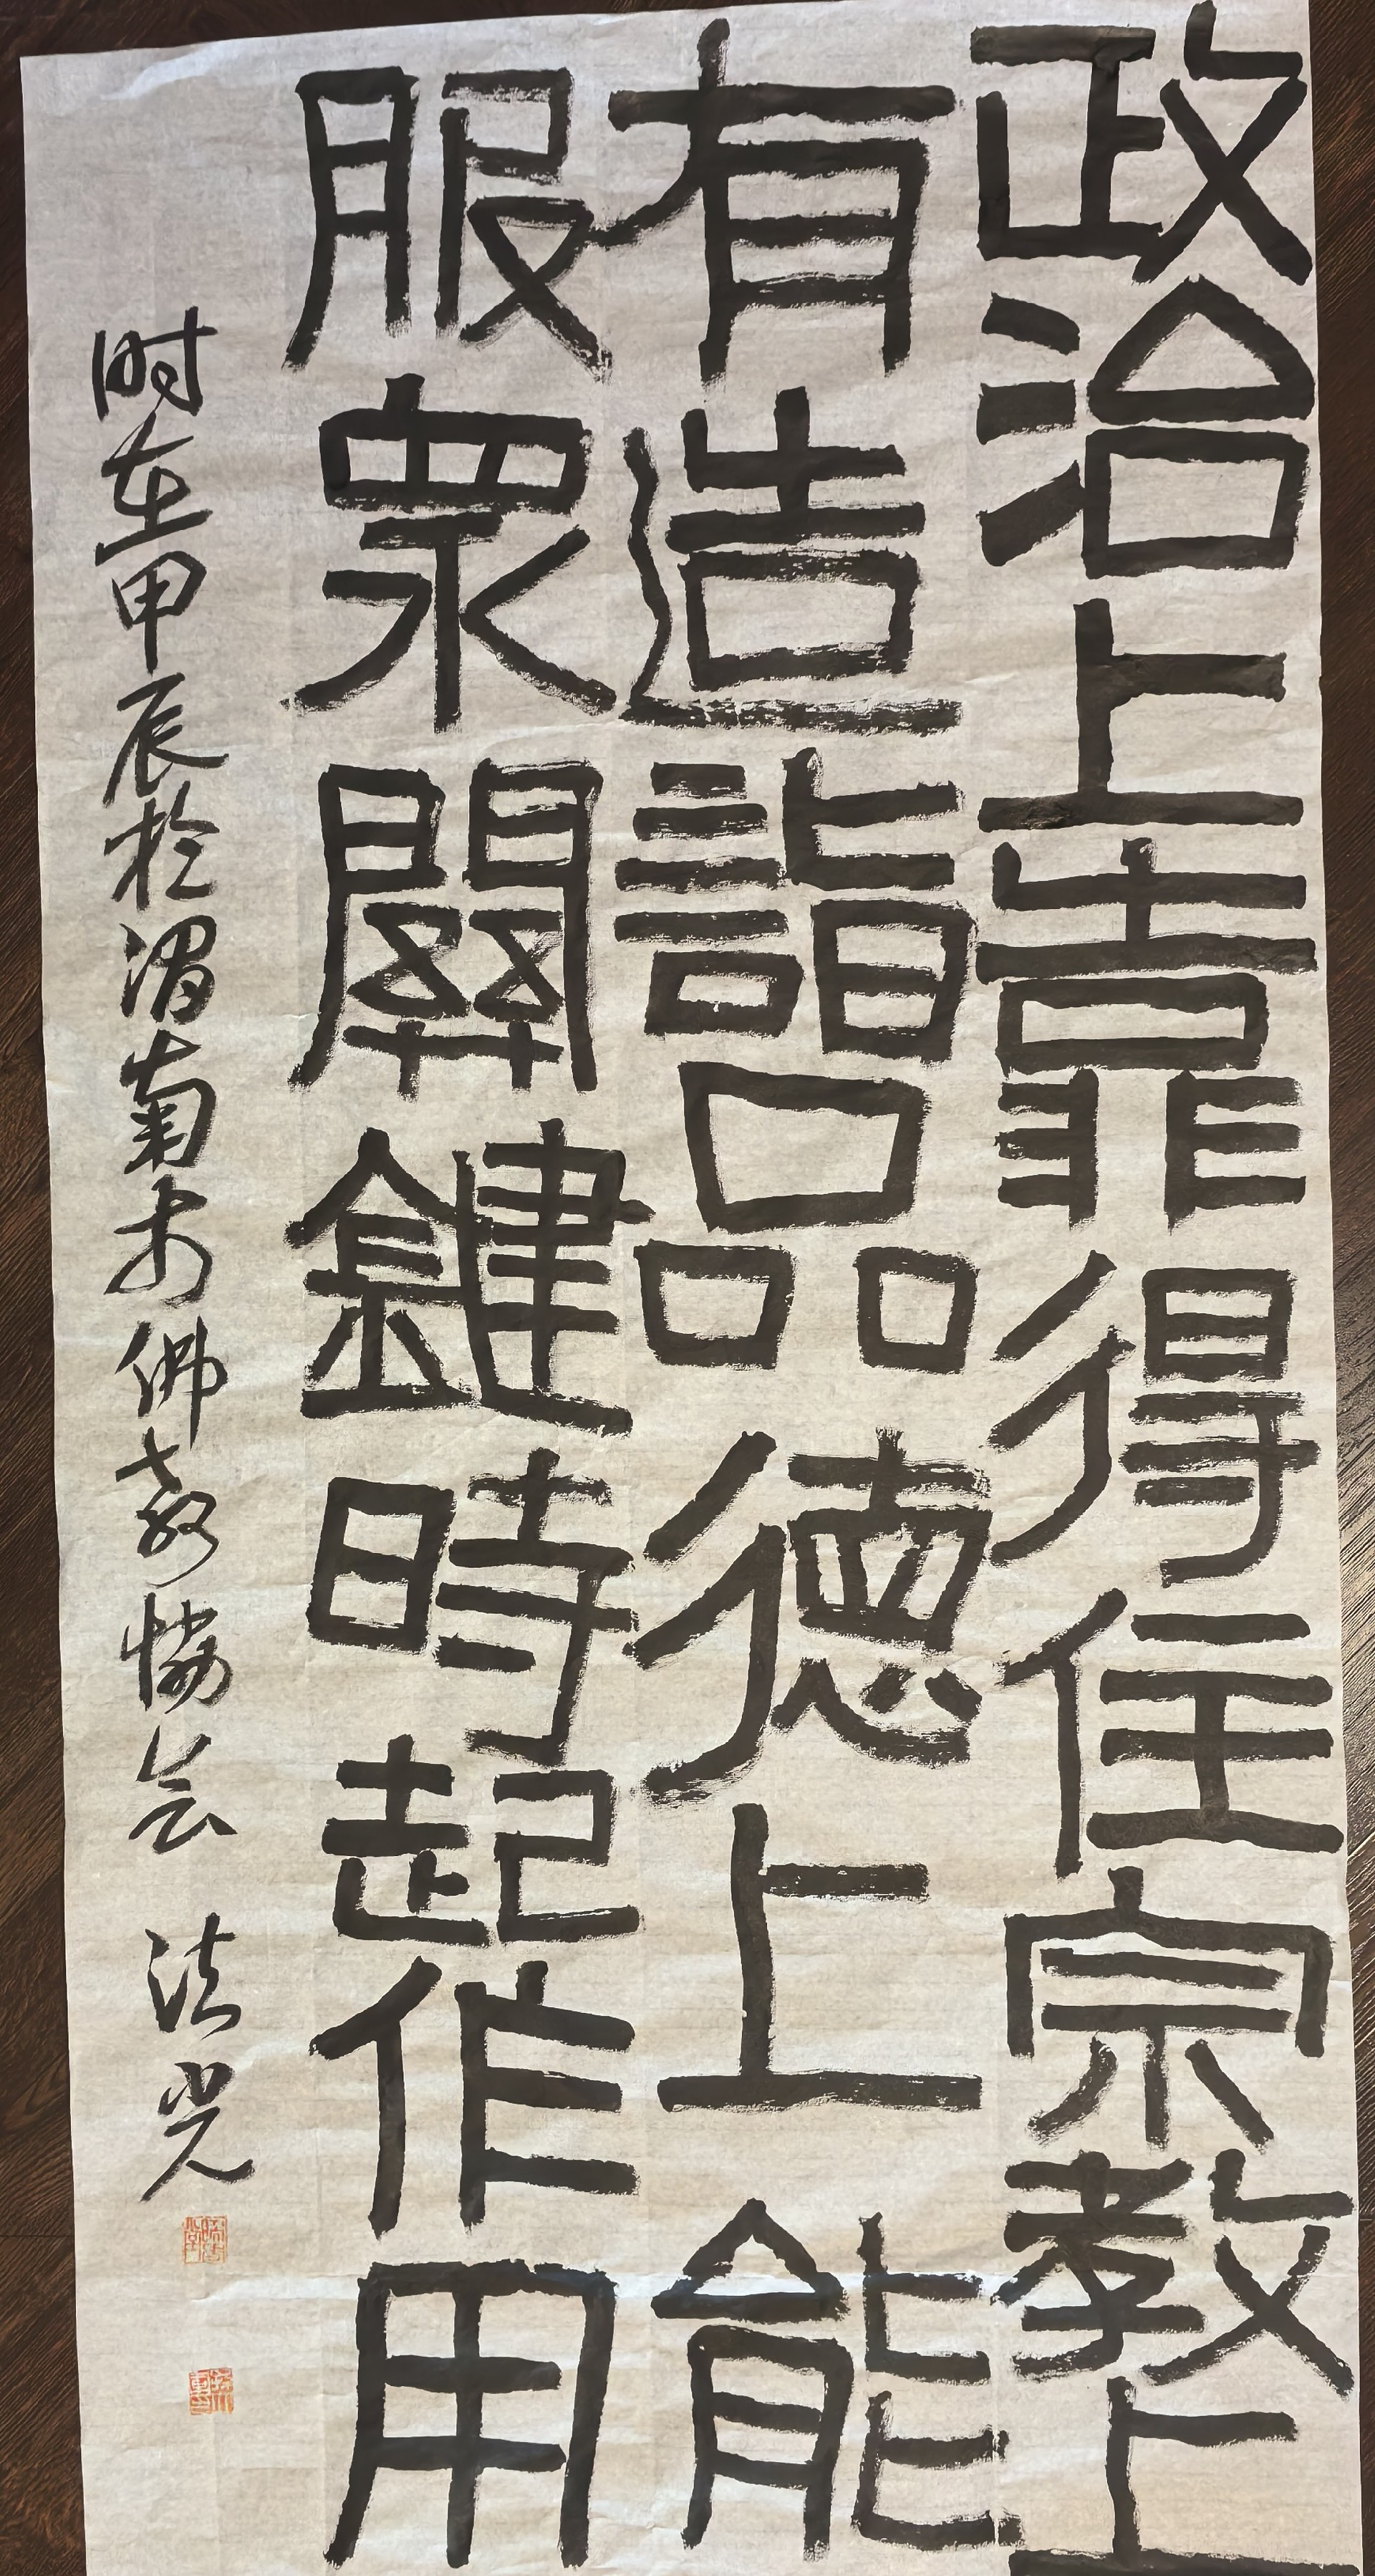 政治上靠得住宗教上
有造詣品德上能
服眾關鍵時起作用
时在甲辰於渭南市佛教協会 法光